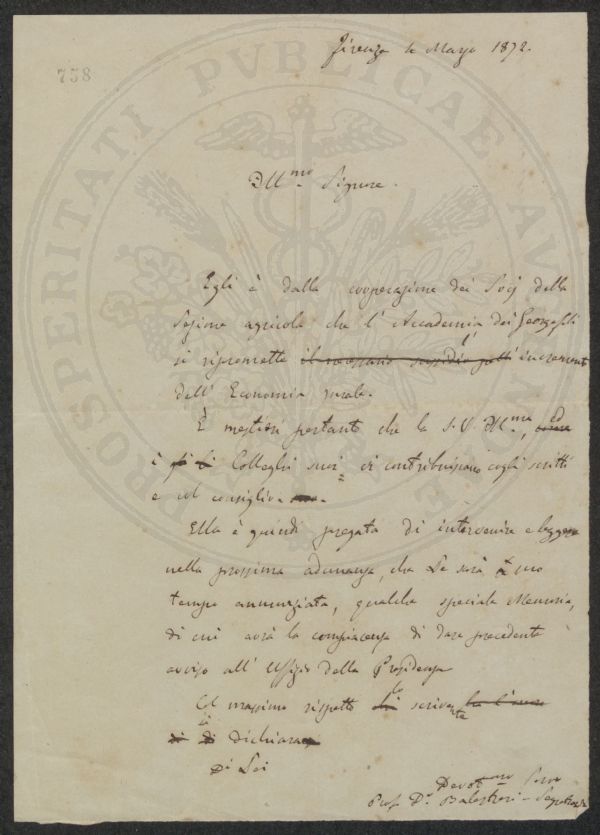 Firenze 4 Marzo 1872.
758
Ill.mo Signore.
Egli è dalla cooperazione dei Socj della
Sezione agricola che l'Accademia dei Georgofili
si ripromette il necessario sussidio l'incremento
dell'Economia rurale.
È mestieri pertanto che la S.V. Ill.ma, ed
i Colleghi suoi vi contribuiscano cogli scritti
e col consiglio.
Ella è quindi pregata di intervenire e leggere
nella prossima adunanza, che Le sarà a suo
tempo annunziata, qualche speciale Memoria,
di cui avrà la compiacenza di dare precedente
avviso all'Uffizio della Presidenza
Col massimo rispetto lo scrivente
si dichiara
Di Lei
Devot.mo Servo
Prof. Dr. Balestreri - Segretario
PROSPERITATI PVBLICAE AVGENDAE